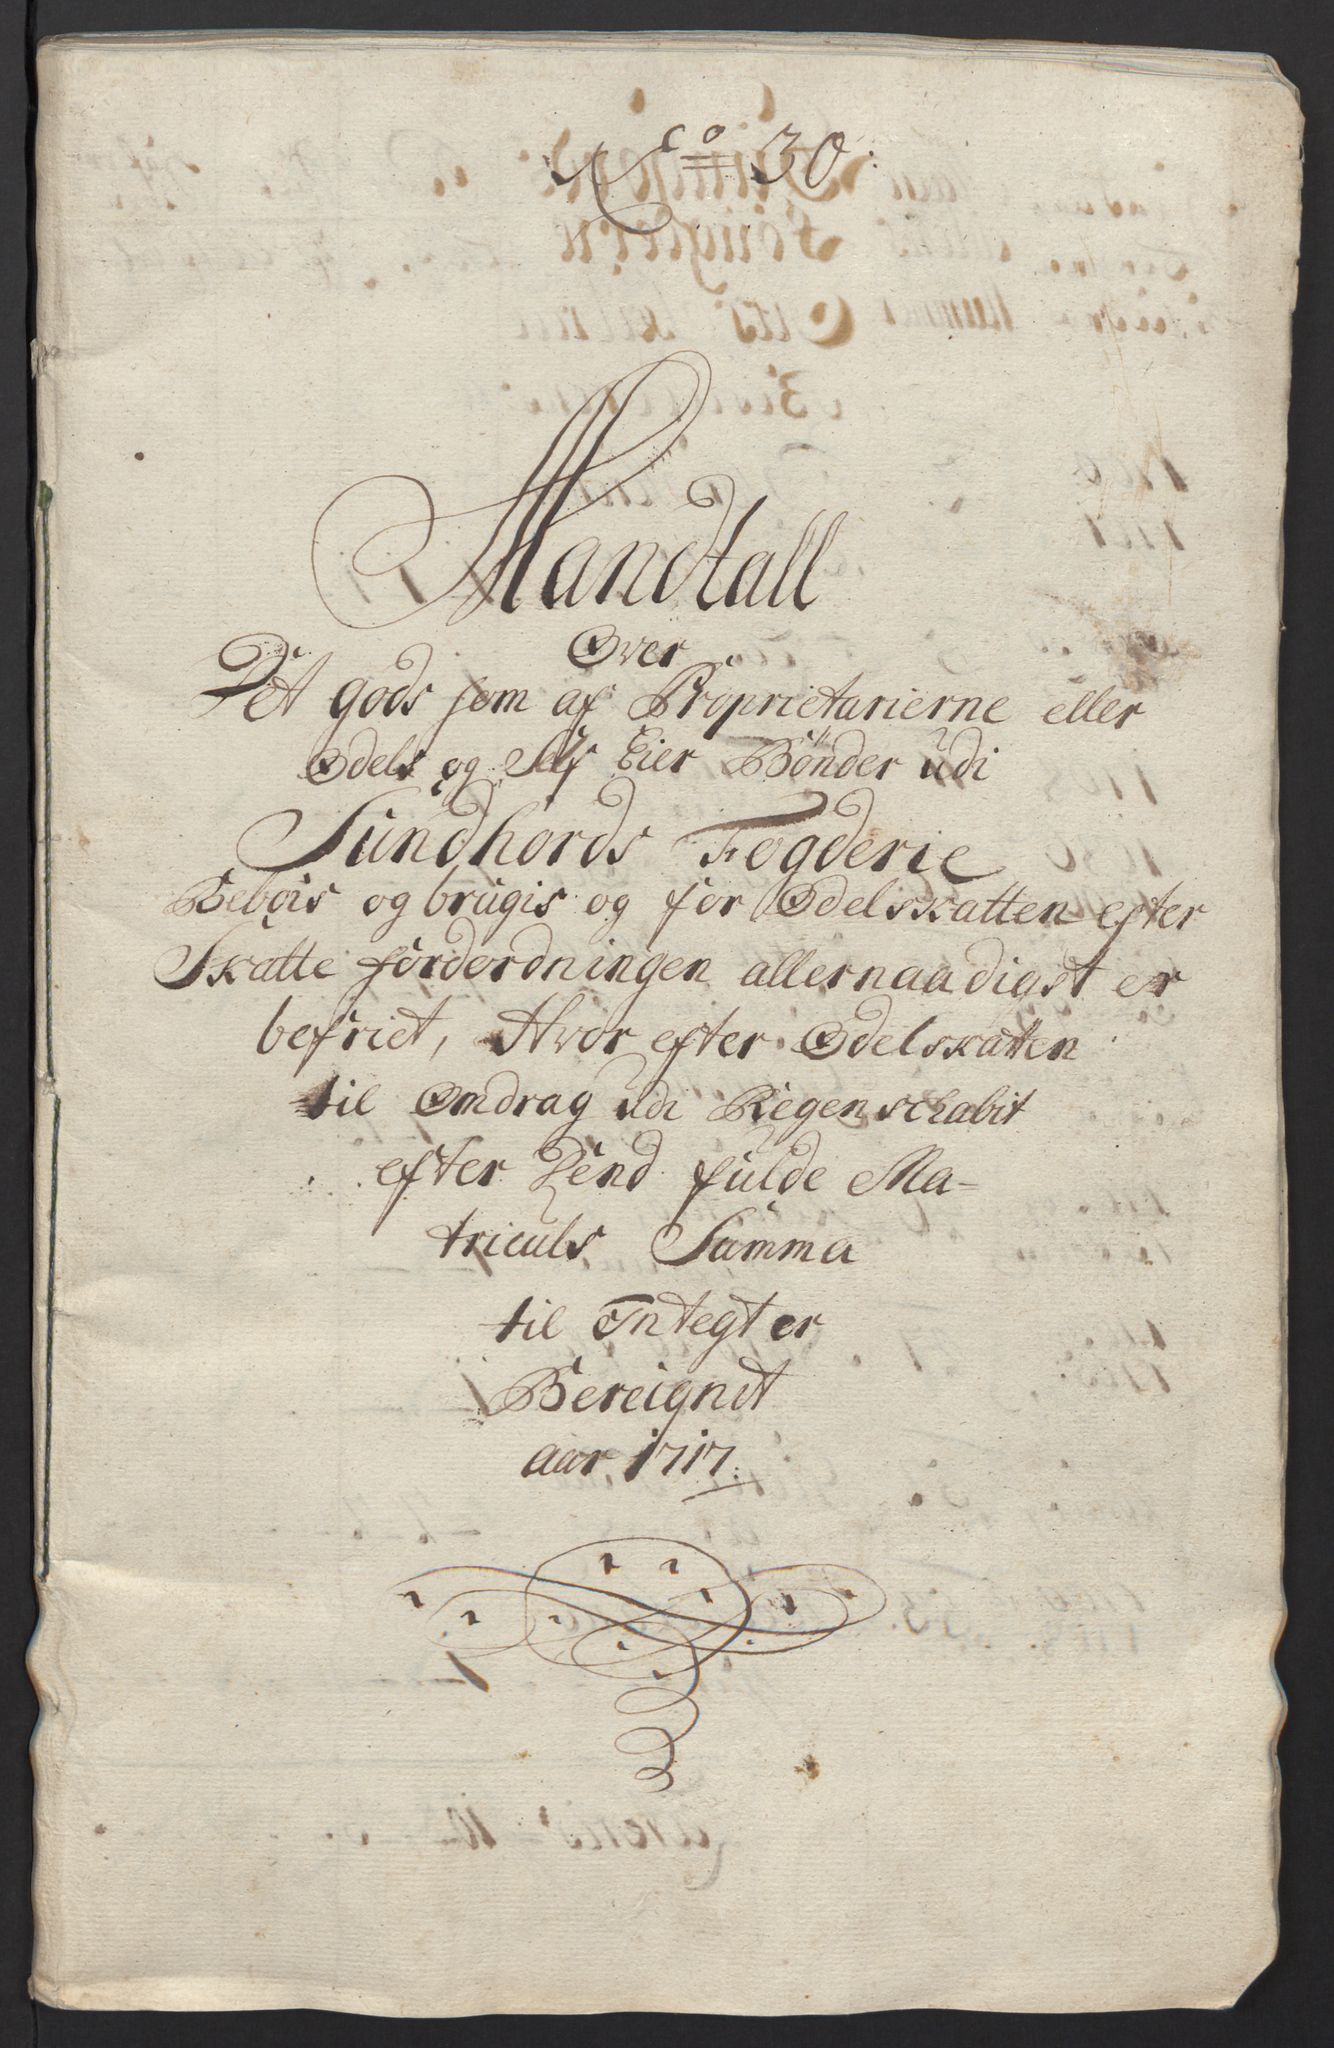 No 30
Mandtall
Over
Det gods som af Proprietarierne eller
Odels og Self Eier Bønder udi
Sundhords Fogderie
Bebois og brugis og for Odelskatten efter
Skatte forordningen allernaadigst er
befriet, Hvor efter Odelskatten
til Omdrag udi Regenschabit
efter Send fulde Ma-
triculs Summa
til Integt er
Bereignet
aar 1717.